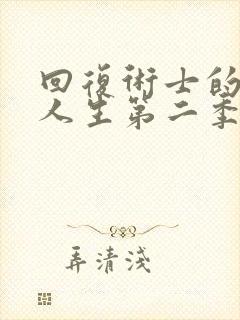 回復術士的
人生第二季
弄清淺